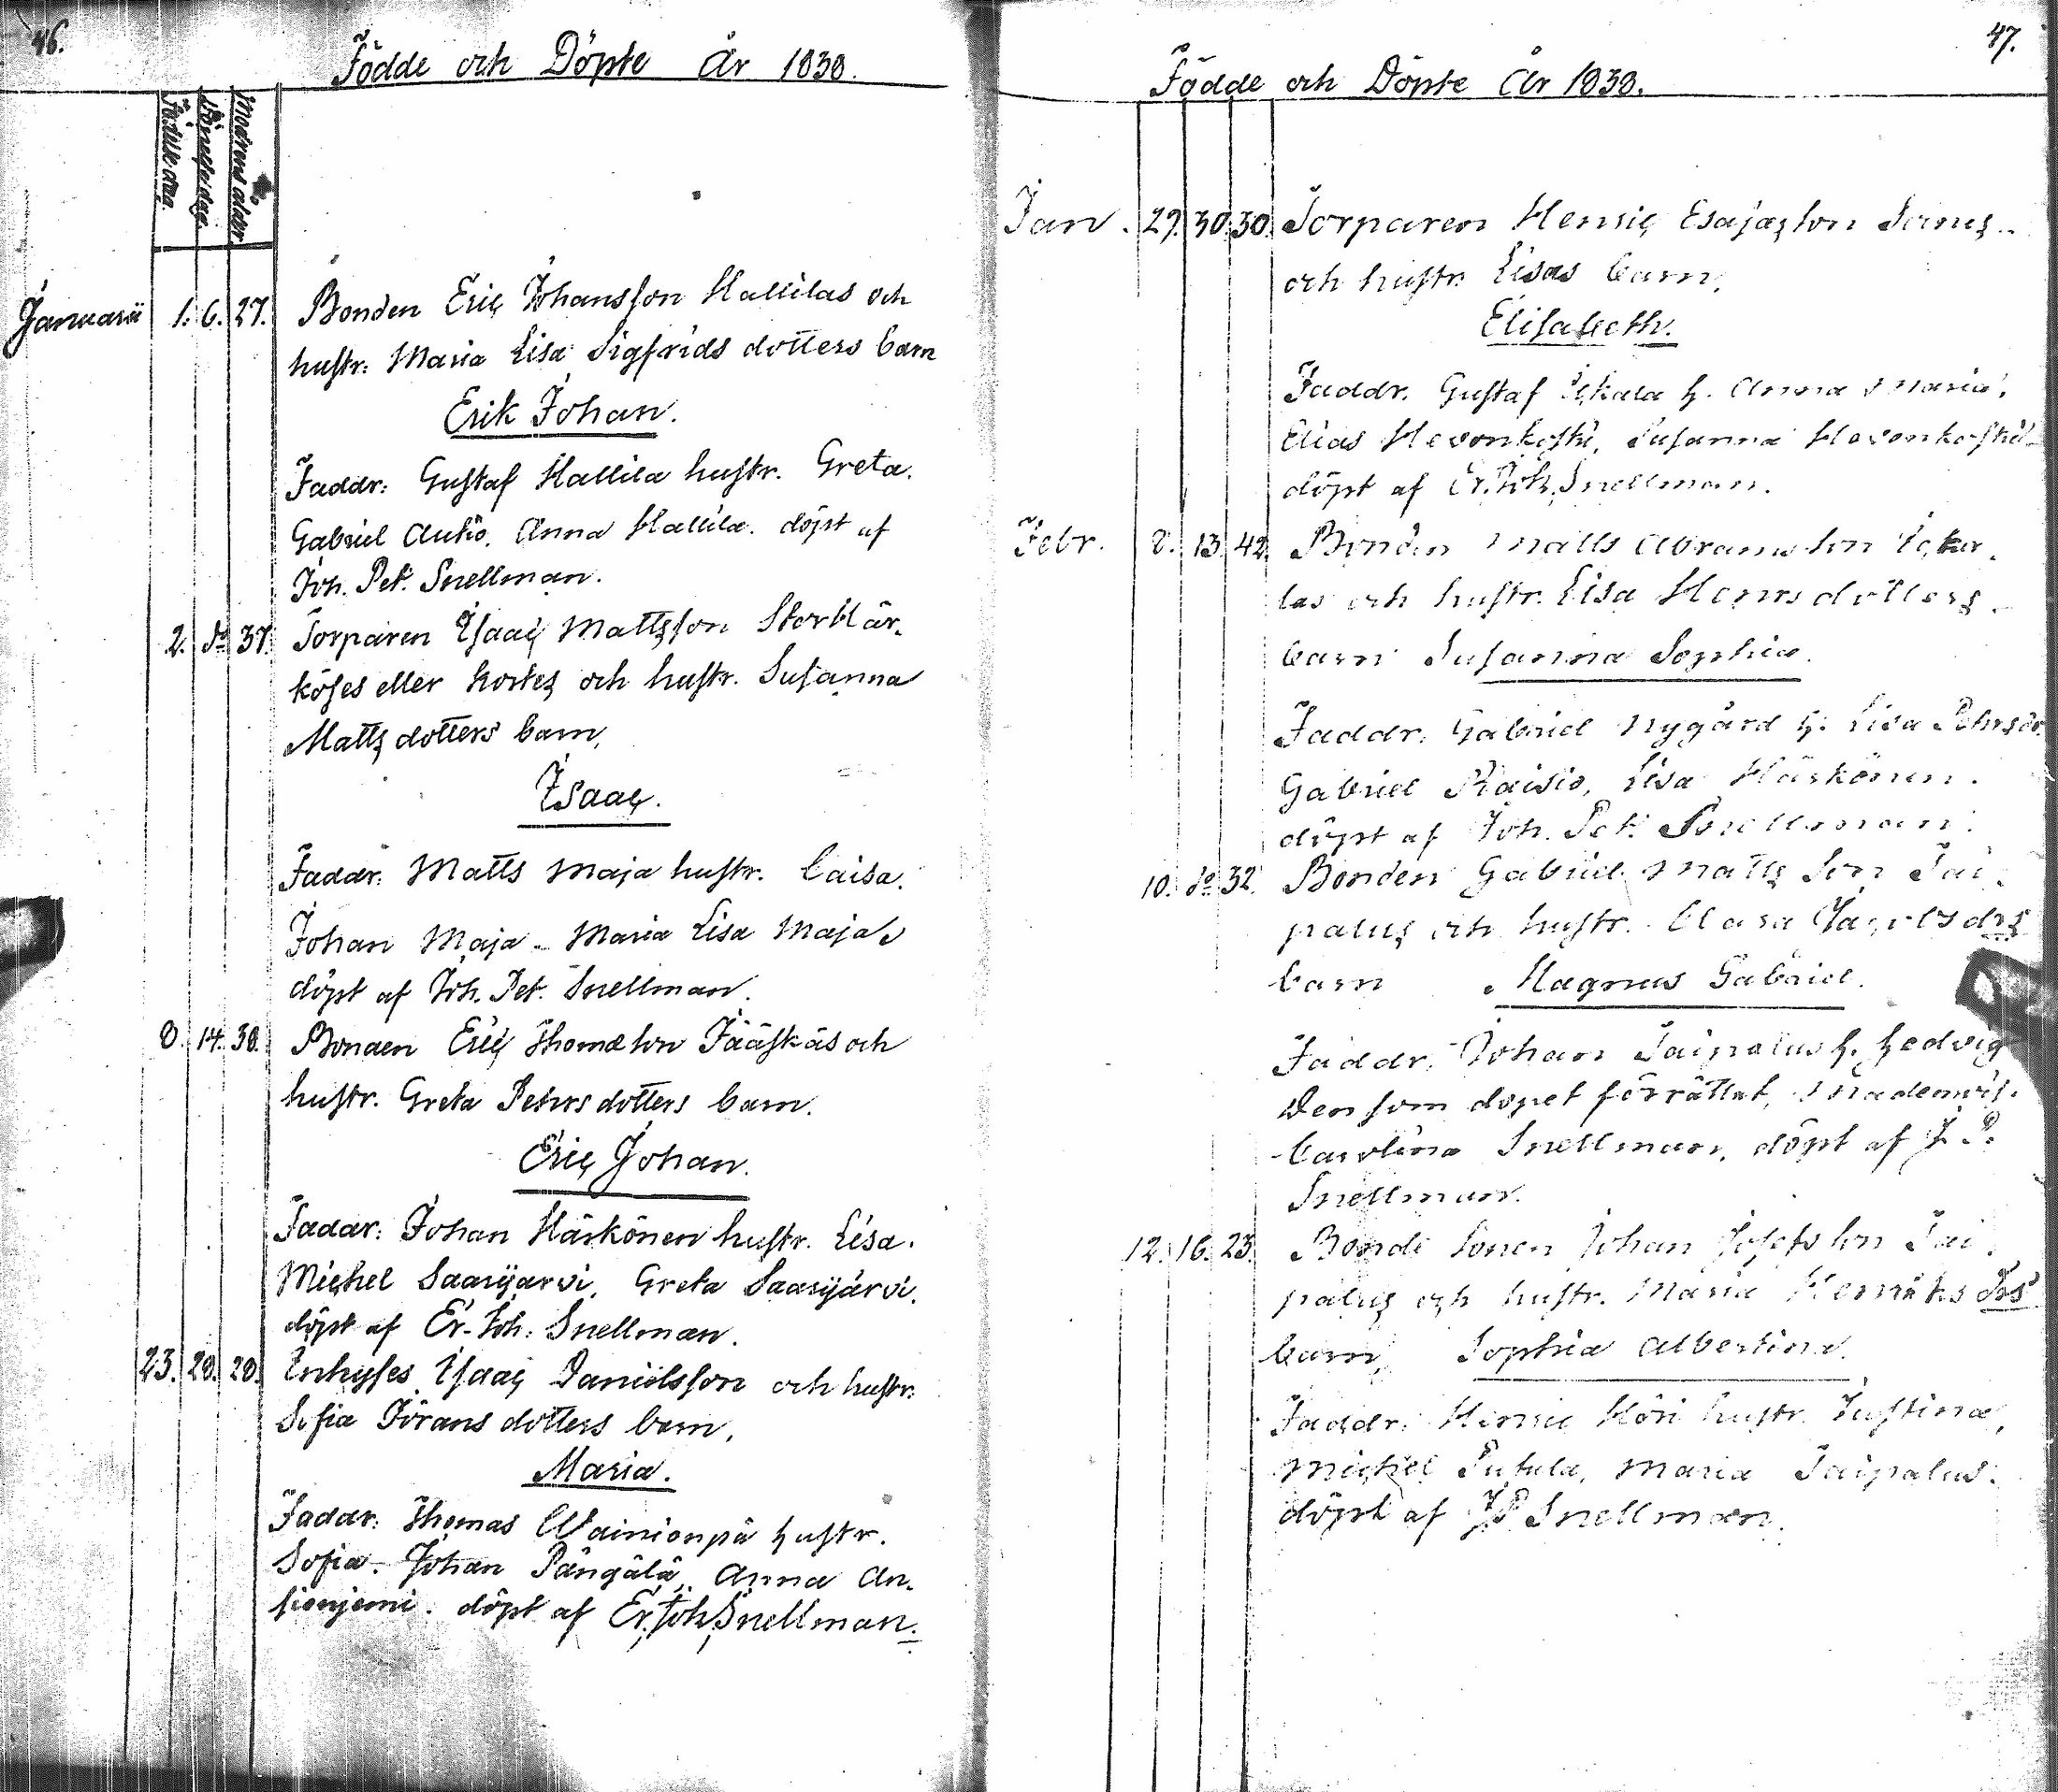 46.
Födde och Döpte År 1838.
Födelse dag.
Döpnelse dag.
Modrens ålder
Januarii 1. 6. 27. Bonden Eric Johansson Hallilas och
hustr: Maria Lisa Sigfrids dotters barn
Erik Johan.
Faddr: Gustaf Hallila hustr. Greta.
Gabriel Autio. Anna Hallila. döpt af
Joh. Pet. Snellman.
2. do 37. Torparen Isaac Mattsson Stor Här-
köses eller Kortes och hustr. Susanna
Matts dotters barn,
Isaac.
Faddr: Matts Maja hustr. Caisa.
Johan Maja - Maria Lisa Maja
döpt af Joh. Pet. Snellman.
8. 14. 38. Bonden Eric Thomæson Jääskäs och
hustr. Greta Pehrs dotters barn.
Eric Johan.
Faddr: Johan Härkönen hustr. Lisa.
Michel Saarijärvi, Greta Saarijärvi.
döpt af Er. Joh: Snellman.
23. 28. 28. Inhyses Isaac Danielsson och hustr.
Sofia Jörans dotters barn,
Maria.
Faddr: Thomas Wainionpä hustr.
Sofia. Johan Pängälä, Anna An-
sionjemi. döpt af Er. Joh. Snellman.
47.
Födde och Döpte År 1838.
Jan. 29. 30. 30. Torparen Henric Esajasson
och hustr. Lisas barn,
Elisabeth.
Faddr. Gustaf h. Anna Maria,
Elias Hevonkoski, Susanna Hevonkoski
döpt af Er. Joh. Snellman.
Febr. 8. 13. 42. Bonden Matts Abramsson
las och hustr. Lisa Henrs dotters
barn Susanna Sophia.
Faddr. Gabriel Nygård h. Lisa Pehrsdr.
Gabriel Raisio, Lisa Härkönen.
döpt af Joh. Pet. Snellman.
10. do 32. Bonden Gabriel Matts Son Tai-
palus och hustr. Clara Jacobsdrs
barn Magnus Gabriel.
Faddr. Johan Taipalus h. Hedvig
Den som dopet förrättat, Mademois.
Carolina Snellman, döpt af J. P.
Snellman.
12. 16. 23. Bonde Sonen Johan Josefsson Tai-
palus och hustr. Maria Henriks drs
barn, Sophia Albertina.
Faddr. Henric Höri hustr. Justina,
Michel Putula, Maria Taipalus.
döpt af JP Snellman.